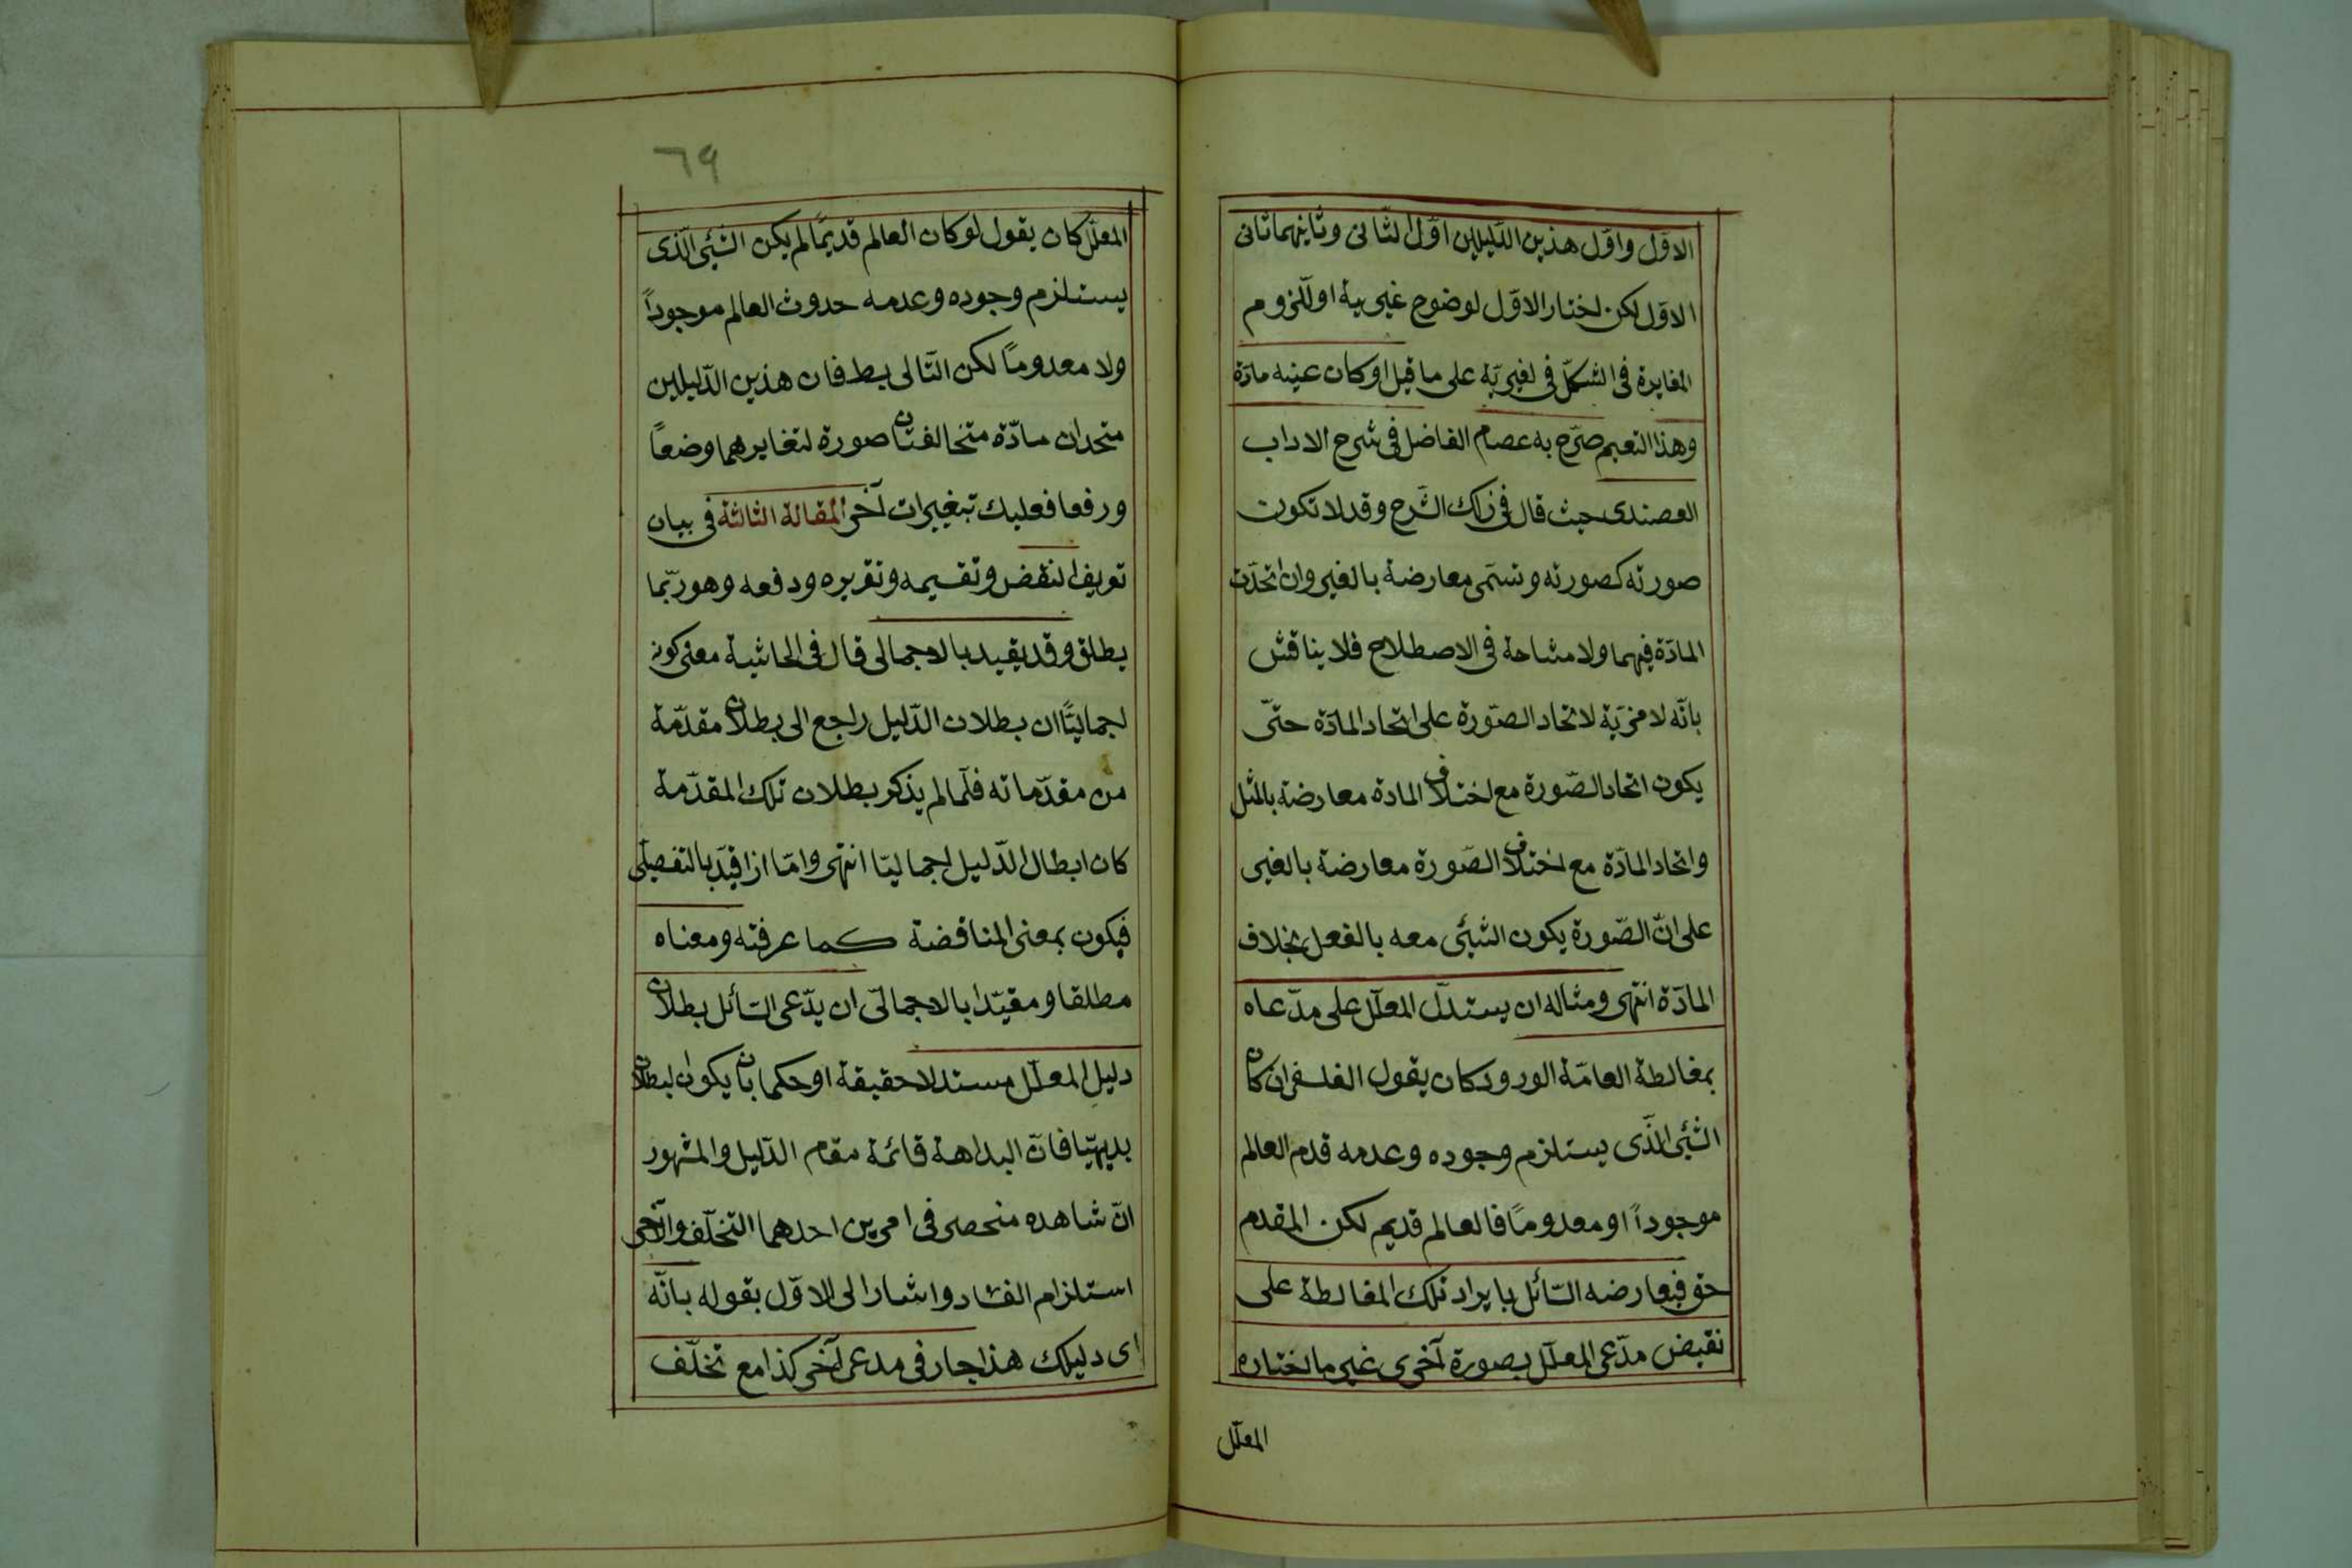 الاوّل واوّل هذين الدّليلين اوّل الثّانى وثانيهما ثانى
الاوّل لكن اختار الاوّل لوضوح غيريّة او للزوم
المغايرة فى الشكل فى لغيريّة على ما قيل او كان عينه مادّة
وهذا التعميم صرّح به عصام الفاضل فى شرح الاداب
العضندى حيث قال فى ذلك الشّرح وقد لا تكون
صورته كصورته وتسمّى معارضة بالغير وان اتحدّت
المادّة فيهما ولا مشاحة فى الاصطلاح فلا يناقش
بانّه لا مزيّة لاتحاد الصّورة على اتحاد المادّة حتّى
يكون اتحاد الصّورة مع اختلاف المادة معارضة بالمثل
واتحاد المادّة مع اختلاف الصّورة معارضة بالغير
على انّ الصّورة يكون الشيئى معه بالفعل بخلاف
المادّة انتهى ومثاله ان يستدلّ المعلّل على مدّعاه
بمغالطة العامّة الورود كان يقول الفلسفى ان كان
الشيئى الّذى يستلزم وجوده وعدمه قدم العالم
موجوداً او معدومًا فالعالم قديم لكن المقدم
حق فيعارضه السّائل بايراد تلك المغالطة على
نقيض مدّعى المعلّل بصورة آخرى غير ما اختاره
المعلّل
٦٩
المعلّل كان يقول لو كان العالم قديمًا لم يكن الشيئى الّذى
يستلزم وجوده وعدمه حدوث العالم موجوداً
ولا معدومًا لكن التّالى بط فان هذين الدّليلين
متحدان مادّة متخالفتان صورة لتغايرهما وضعاً
ورفعا فعليك تبغيرات آخر المقالة الثالثة فى بيان
تعريف النقض وتقسيمه وتقريره ودفعه وهو ربّما
يطلق وقد يقيد بالاجمالى قال فى الحاشية معنى كونه
اجماليًّا ان بطلان الدّليل راجع الى بطلان مقدّمة
من مقدّماته فلّما لم يذكر بطلان تلك المقدّمة
كان ابطال الدّليل اجماليّا انتهى وامّا اذا قيّد بالتفصيلى
فيكون بمعنى المناقضة كما عرفته ومعناه
مطلقا ومقيّدا بالاجمالىّ ان يدّعى السّائل بطلان
دليل المعلّل مستدلا حقيقة او حكما بان يكون لبطلان
بديهيّا فانّ البداهة قائمة مقام الدّليل والمشهور
انّ شاهده منحصر فى امرين احدهما التخلّف والآخر
استلزام الفساد واشار الى الاوّل بقوله بانّه
اى دليلك هذا جار فى مدعى آخر كذا مع تخلّف